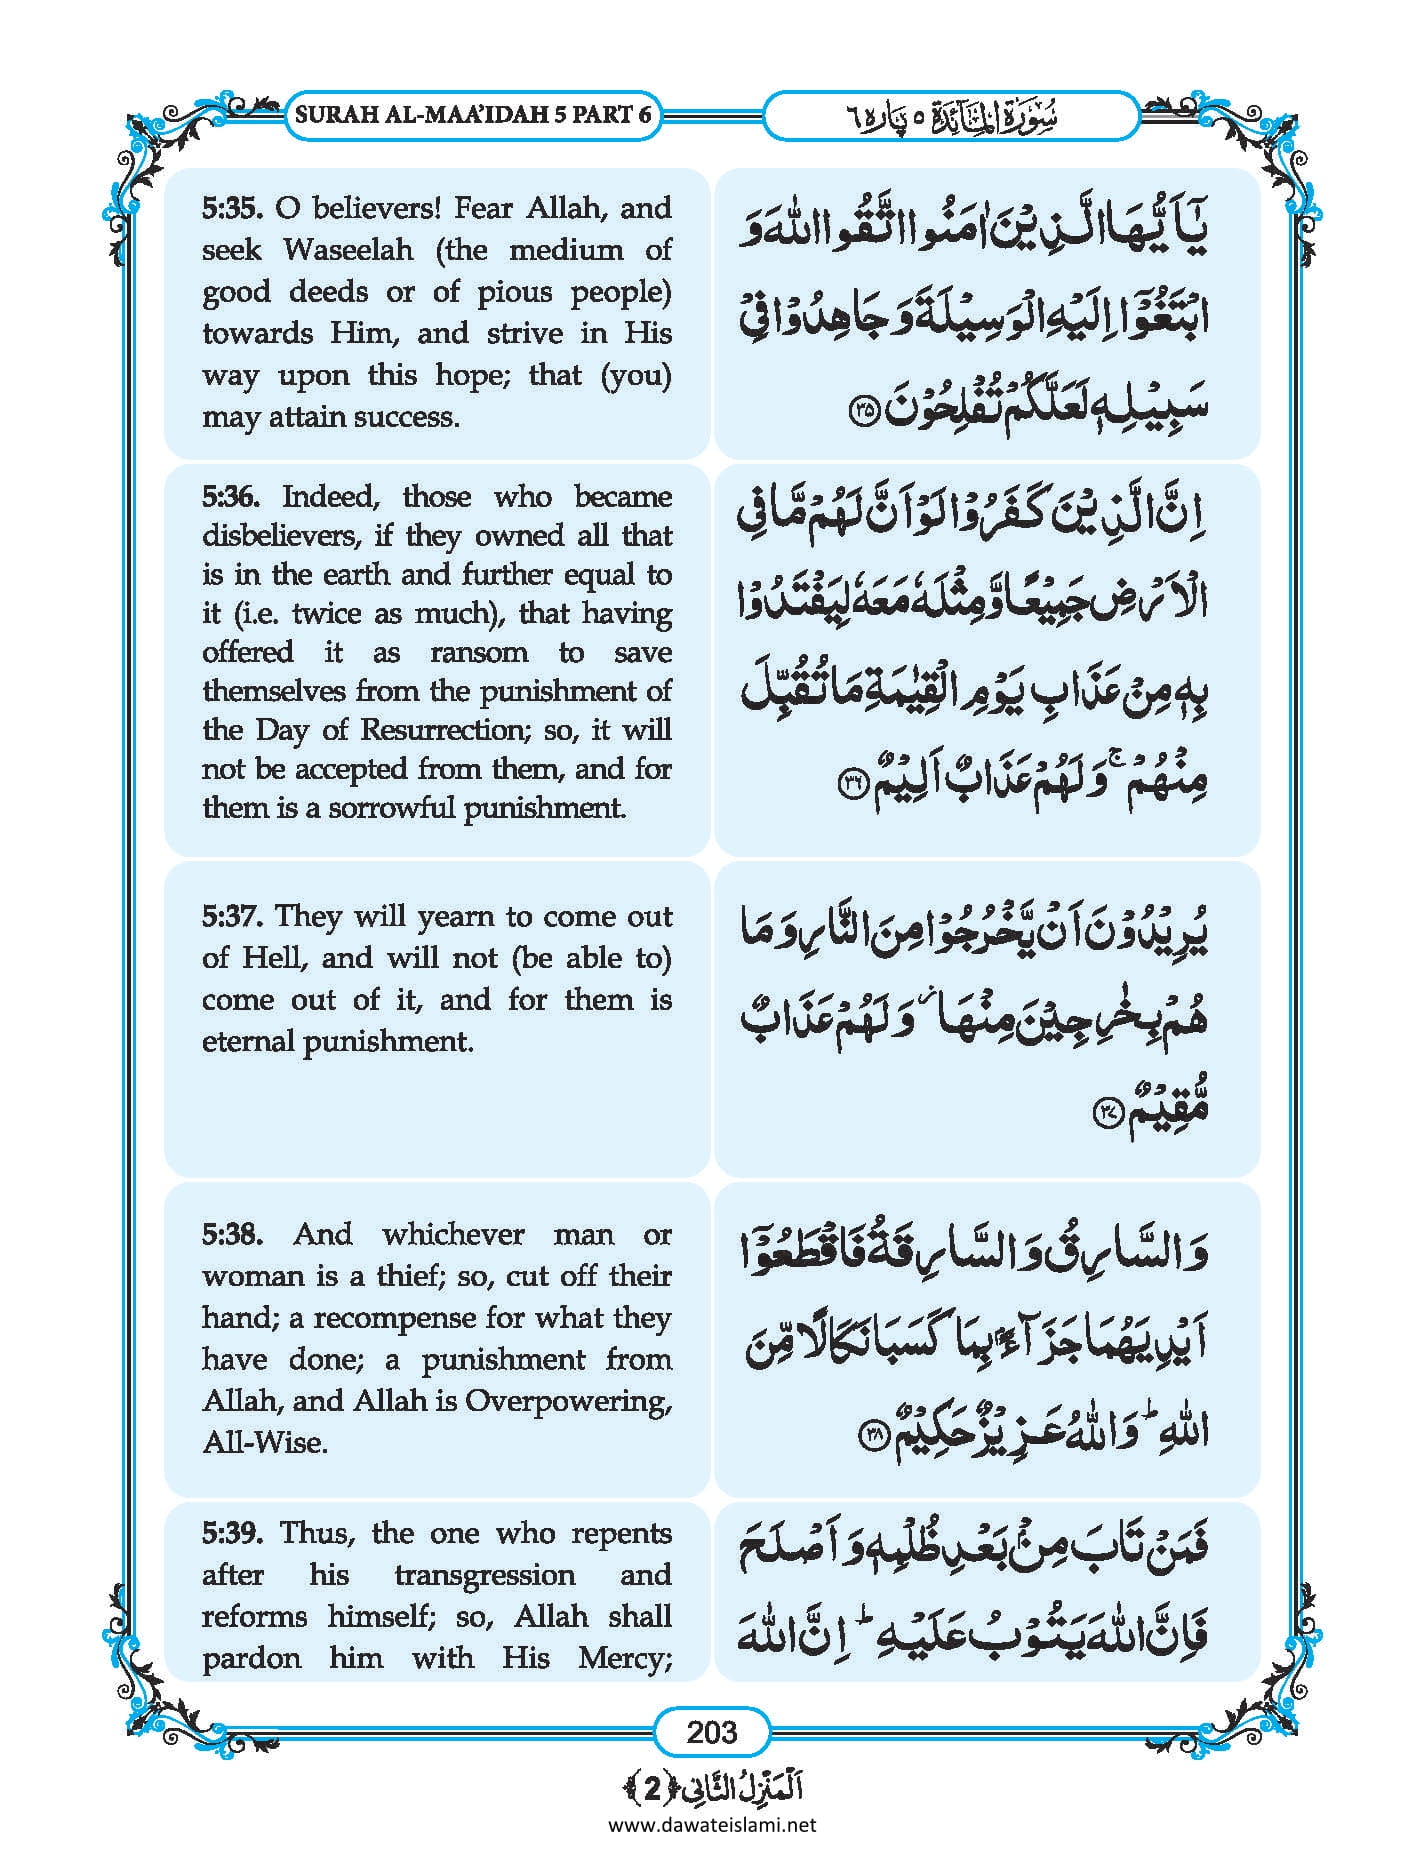 SURAH AL-MAA’IDAH 5 PART 6
سُوْرَةُ الْمَآئِدَة ٥ پَاره ٦
5:35. O believers! Fear Allah, and
seek Waseelah (the medium of
good deeds or of pious people)
towards Him, and strive in His
way upon this hope; that (you)
may attain success.
يٰۤاَيُّهَا الَّذِيْنَ اٰمَنُوا اتَّقُوا اللّٰهَ وَ
ابْتَغُوْۤا اِلَيْهِ الْوَسِيْلَةَ وَ جَاهِدُوْا فِيْ
سَبِيْلِهٖ لَعَلَّكُمْ تُفْلِحُوْنَ ﴿۳۵﴾
5:36. Indeed, those who became
disbelievers, if they owned all that
is in the earth and further equal to
it (i.e. twice as much), that having
offered it as ransom to save
themselves from the punishment of
the Day of Resurrection; so, it will
not be accepted from them, and for
them is a sorrowful punishment.
اِنَّ الَّذِيْنَ كَفَرُوْا لَوْ اَنَّ لَهُمْ مَّا فِي
الْاَرْضِ جَمِيْعًا وَّ مِثْلَهٗ مَعَهٗ لِيَفْتَدُوْا
بِهٖ مِنْ عَذَابِ يَوْمِ الْقِيٰمَةِ مَا تُقُبِّلَ
مِنْهُمْ ۚ وَ لَهُمْ عَذَابٌ اَلِيْمٌ ﴿۳۶﴾
5:37. They will yearn to come out
of Hell, and will not (be able to)
come out of it, and for them is
eternal punishment.
يُرِيْدُوْنَ اَنْ يَّخْرُجُوْا مِنَ النَّارِ وَ مَا
هُمْ بِخٰرِجِيْنَ مِنْهَا ؗ وَ لَهُمْ عَذَابٌ
مُّقِيْمٌ ﴿۳۷﴾
5:38. And whichever man or
woman is a thief; so, cut off their
hand; a recompense for what they
have done; a punishment from
Allah, and Allah is Overpowering,
All-Wise.
وَ السَّارِقُ وَ السَّارِقَةُ فَاقْطَعُوْۤا
اَيْدِيَهُمَا جَزَآءًۢ بِمَا كَسَبَا نَكَالًا مِّنَ
اللّٰهِ ؕ وَ اللّٰهُ عَزِيْزٌ حَكِيْمٌ ﴿۳۸﴾
5:39. Thus, the one who repents
after his transgression and
reforms himself; so, Allah shall
pardon him with His Mercy;
فَمَنْ تَابَ مِنْۢ بَعْدِ ظُلْمِهٖ وَ اَصْلَحَ
فَاِنَّ اللّٰهَ يَتُوْبُ عَلَيْهِ ؕ اِنَّ اللّٰهَ
203
اَلْمَنْزِلُ الثَّانِي ﴿2﴾
www.dawateislami.net